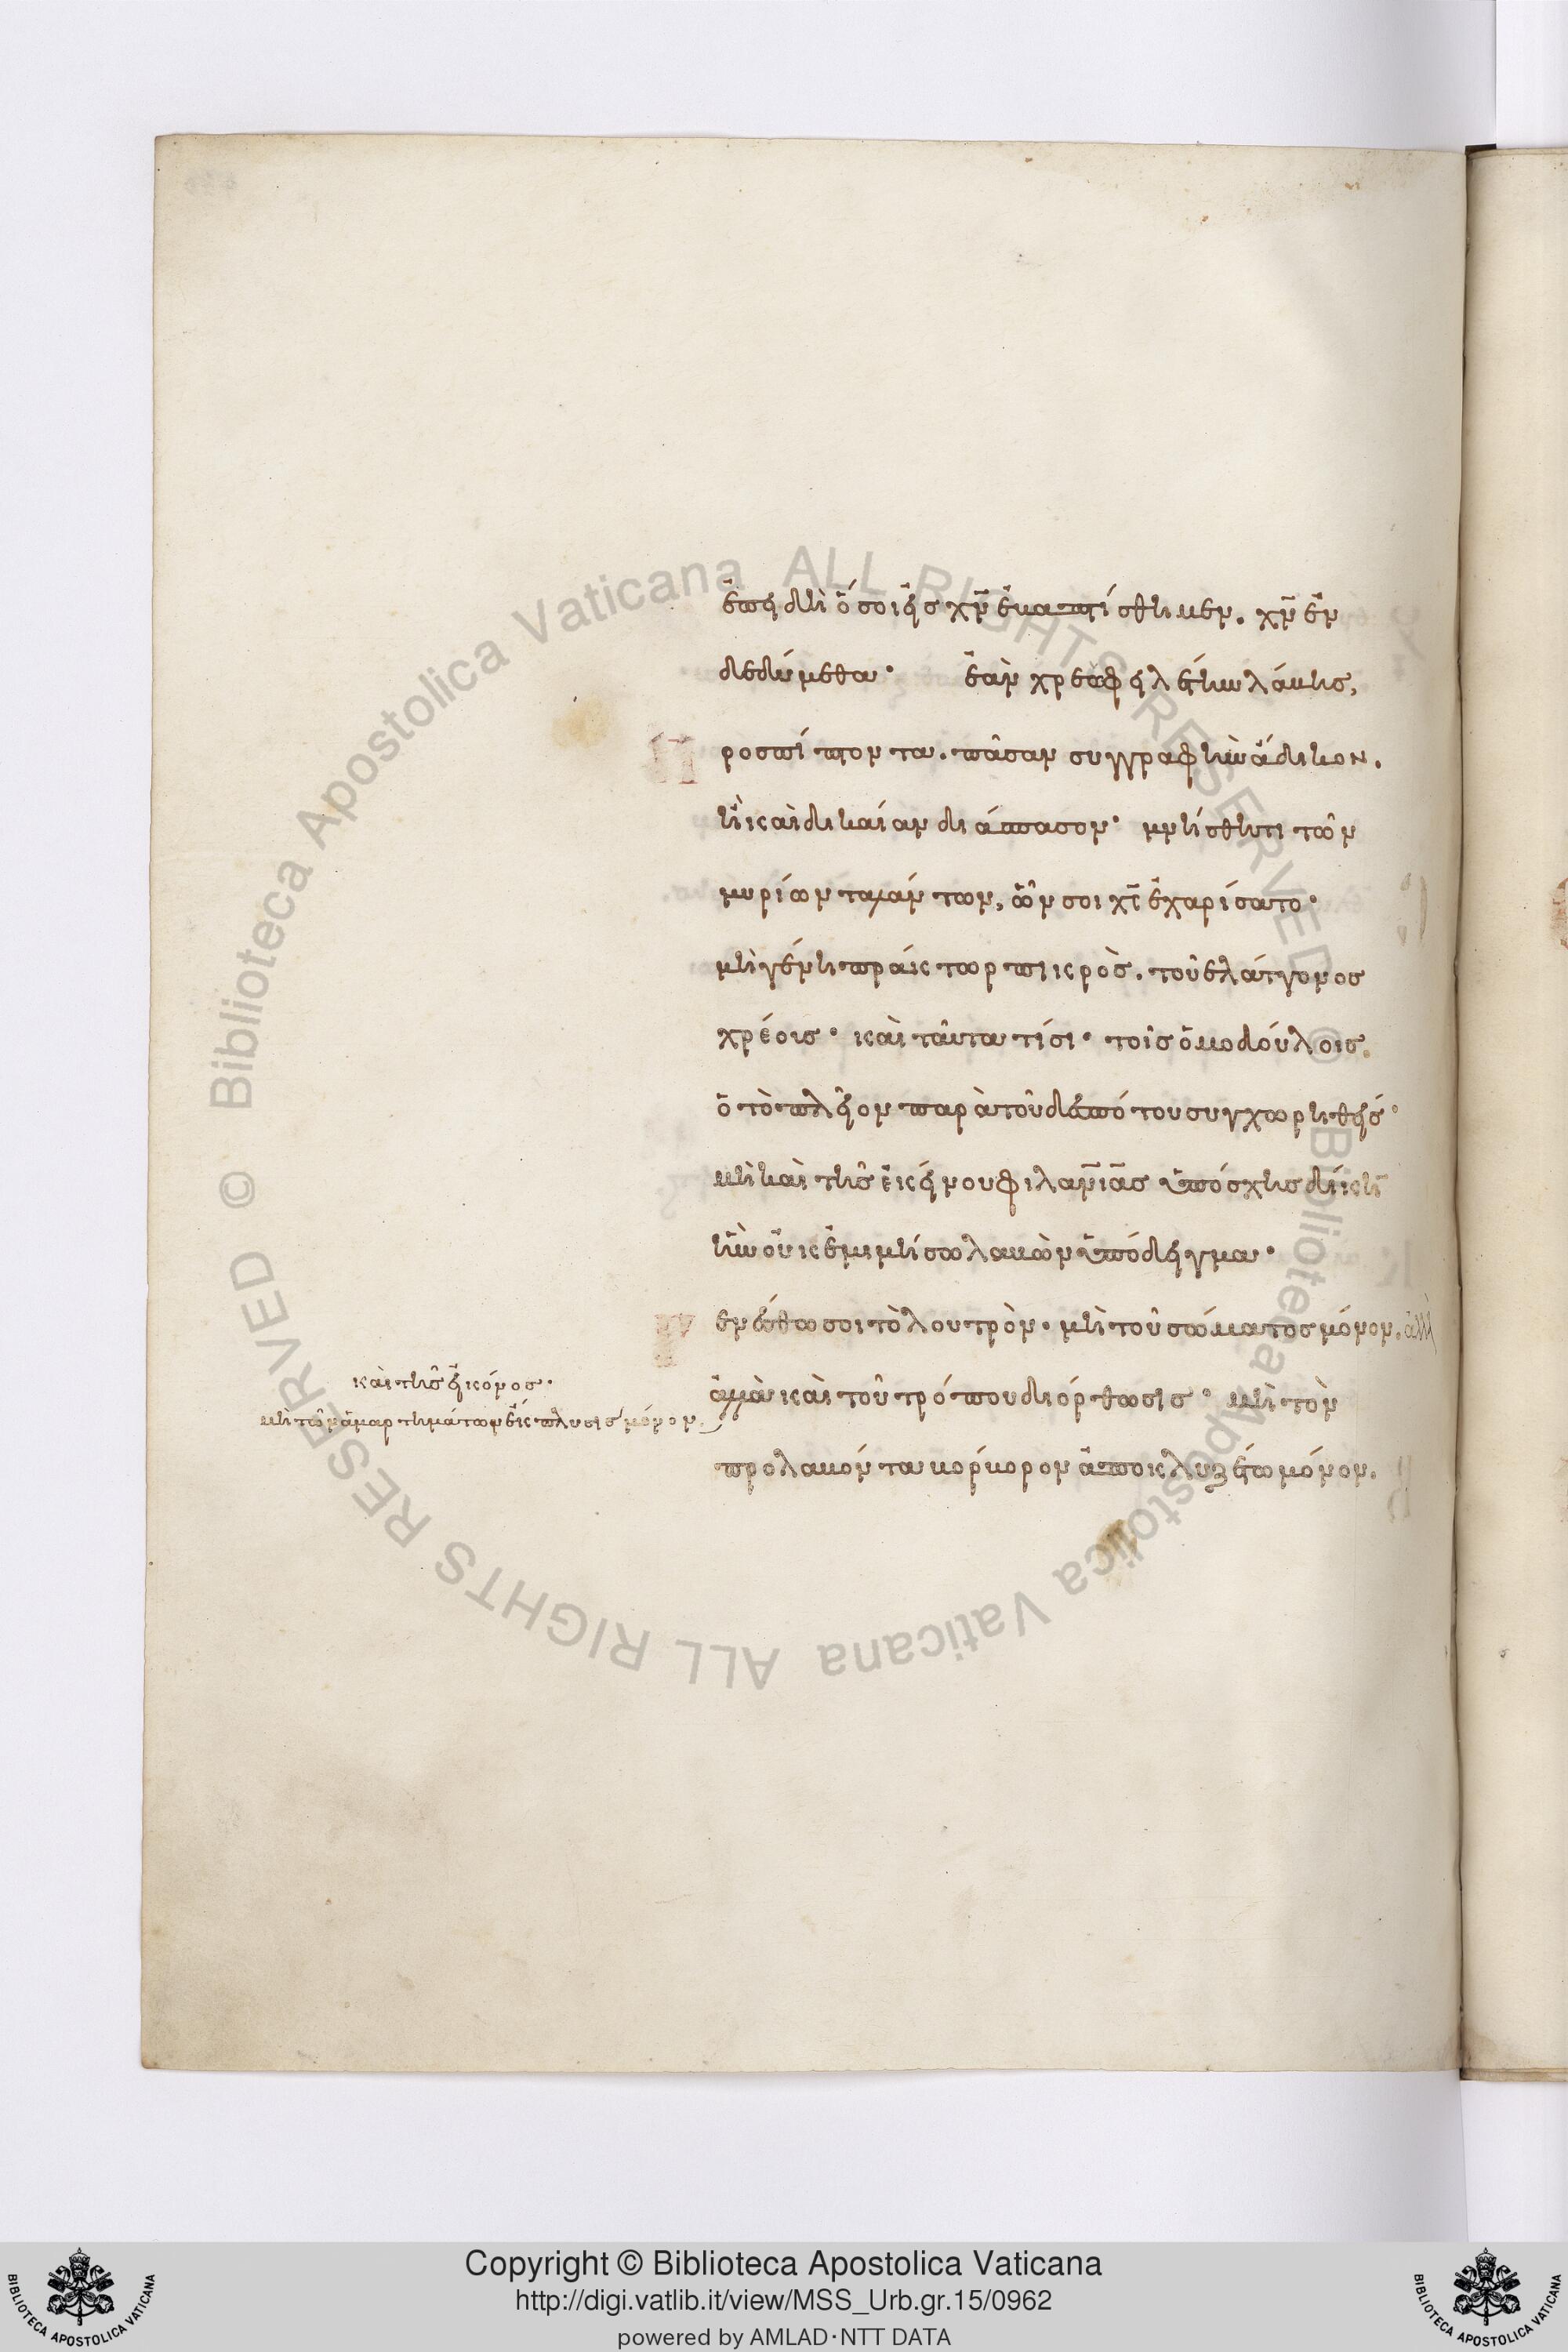 ἐπειδὴ ὅσοι εἰς χν ἐβαπτίσθημεν. χν ἐν
δεδύμεθα· ἐὰν χρεωφειλέτην λάβης,
προσπίπτοντα. πᾶσαν συγγραφὴν ἄδικον.
ἢ καὶ δικαίαν διάσπασον· μνήσθητι τῶν
μυρίων ταλάντων, ὧν σοι χς ἐχαρίσατο·
μὴ γένη πράκτωρ πικρὸς. τοῦ ἐλάττονος
χρέους· καὶ ταῦτα τίσι· τοῖς ὁμοδούλοις.
ὁ τὸ πλεῖον παρὰ τοῦ δεσπότου συγχωρηθείς·
μὴ καὶ τῆς ἐκείνου φιλανιας ὑπόσχης δίκη
ἣν οὐκ ἐμιμήσω λαβὼν ὑπόδειγμα·
Γενέσθω σοι τὸ λουτρὸν. μὴ τοῦ σώματος μόνον. ἀλλὰ
καὶ τῆς εἰκόνος·
μὴ τῶν ἁμαρτημάτων ἔκπλυσις μόνον.
ἀλλὰ καὶ τοῦ τρόπου διόρθωσις· μὴ τὸν
προλαβόντα βόρβορον ἀποκλυζέτω μόνον.
Copyright © Biblioteca Apostolica Vaticana
http://digi.vatlib.it/view/MSS_Urb.gr.15/0962
powered by AMLAD·NTT DATA
BIBLIOTECA APOSTOLICA VATICANA
BIBLIOTECA APOSTOLICA VATICANA
© Biblioteca Apostolica Vaticana ALL RIGHTS RESERVED © Biblioteca Apostolica Vaticana ALL RIGHTS RESERVED